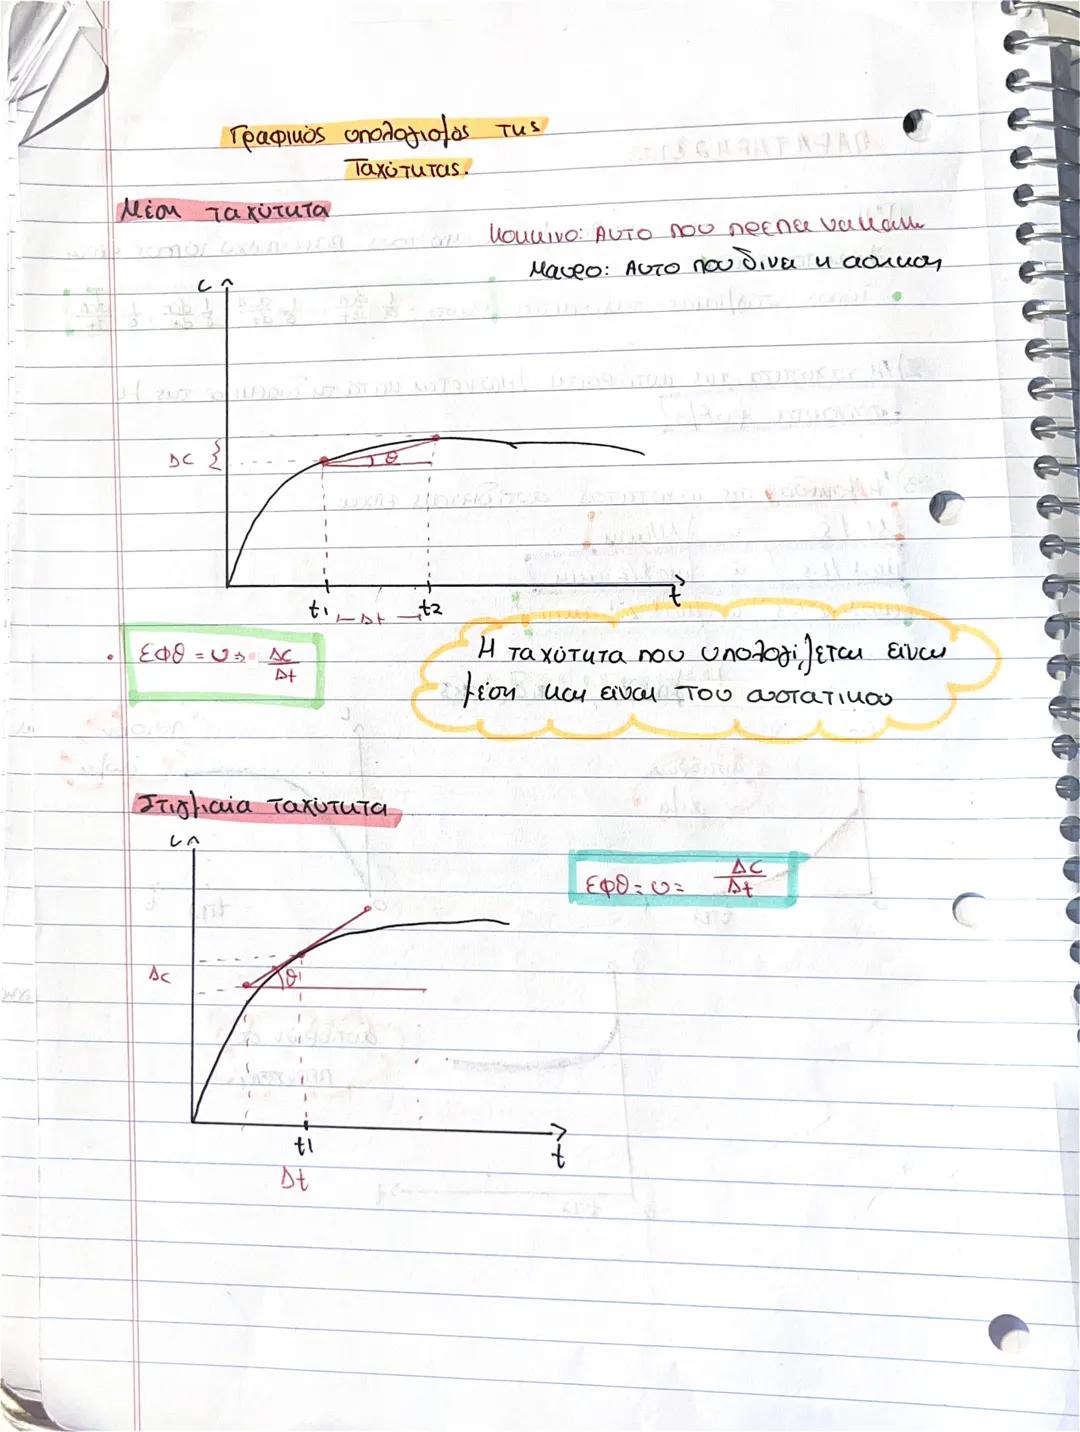 Γραφικός υπολογισμός της
Ταχύτητας.
Μέση ταχύτητα
Κοκκινο: Αυτο που πρεπει να κανω
Μαυρο: Αυτο που δινει η ασκηση
C
Δc
θ
t1 Δt t2
t
εφθ = υ => Δc/Δt
Η ταχύτητα που υπολογίζεται ειναι
μέση και ειναι του συστατικου
Στιγμιαία ταχύτητα
C
εφθ = υ = Δc/Δt
Δc
θ
t1
t
Δt